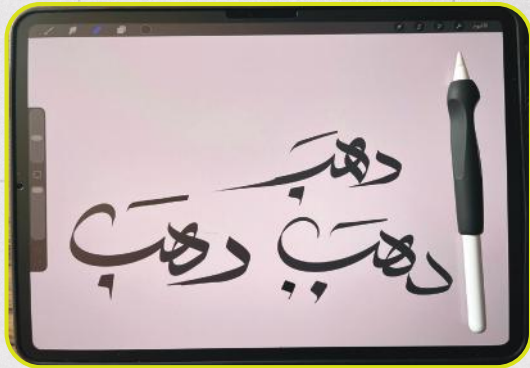 دهبَ
دهبَ دهبَ